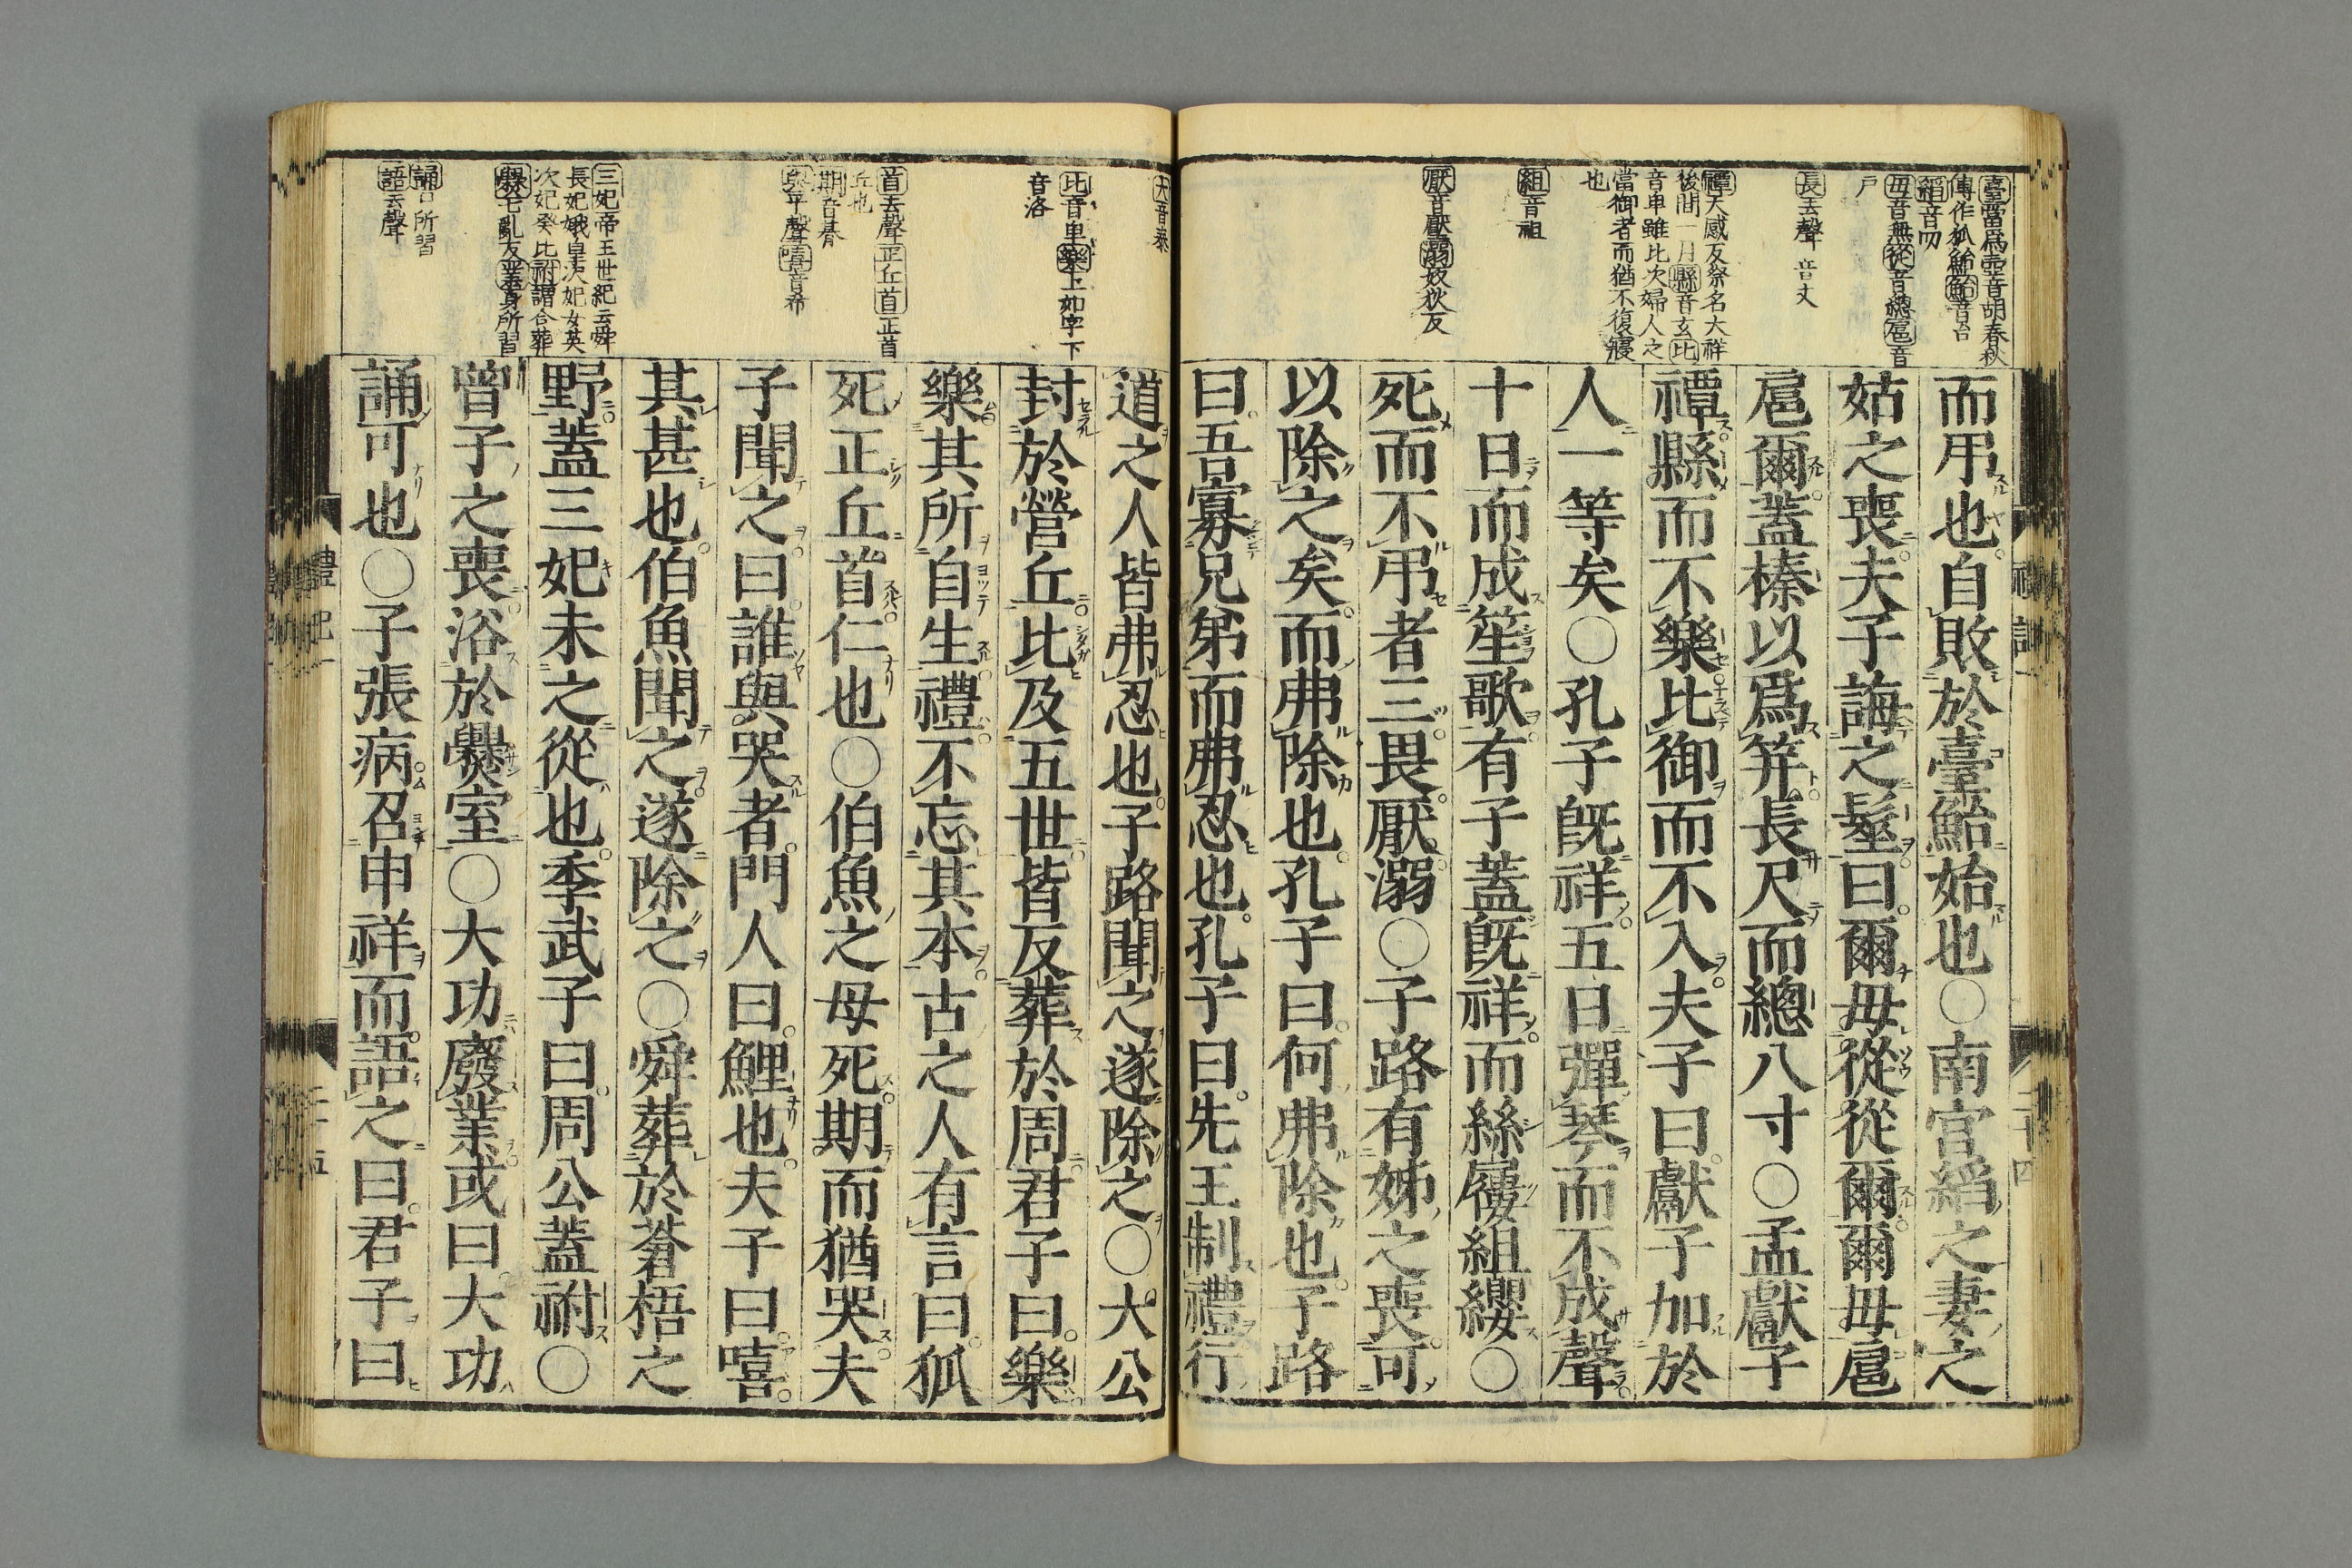 臺當爲壺音胡春秋
傳作狐鮐鮐音台
縚音叨
毋音無從音緫扈音
戶
長去聲 音丈
禫大感反祭名大祥
後間一月縣音玄比
音卑雖比次婦人之
當御者而猶不復寢
也
組音祖
厭音壓溺奴狄反
而弔也自敗於臺鮐始也○南宮縚之妻之
姑之喪夫子誨之髽曰爾毋從從爾爾毋扈
扈爾蓋榛以爲笄長尺而總八寸○孟獻子
禫縣而不樂比御而不入夫子曰獻子加於
人一等矣○孔子旣祥五日彈琴而不成聲
十日而成笙歌有子蓋旣祥而絲屨組纓○
死而不弔者三畏厭溺○子路有姊之喪可
以除之矣而弗除也孔子曰何弗除也子路
曰吾寡兄弟而弗忍也孔子曰先王制禮行
大音泰
比音卑樂上如字下
音洛
首去聲正丘首正首
丘也
期音朞
與平聲嘻音希
三妃帝王世紀云舜
長妃娥皇次妃女英
次妃癸比祔謂合葬
爨七亂反業身所習
誦口所習
語去聲
道之人皆弗忍也子路聞之遂除之○大公
封於營丘比及五世皆反葬於周君子曰樂
樂其所自生禮不忘其本古之人有言曰狐
死正丘首仁也○伯魚之母死期而猶哭夫
子聞之曰誰與哭者門人曰鯉也夫子曰嘻
其甚也伯魚聞之遂除之○舜葬於蒼梧之
野蓋三妃未之從也季武子曰周公蓋祔○
曾子之喪浴於爨室○大功廢業或曰大功
誦可也○子張病召申祥而語之曰君子曰
禮記
二十五